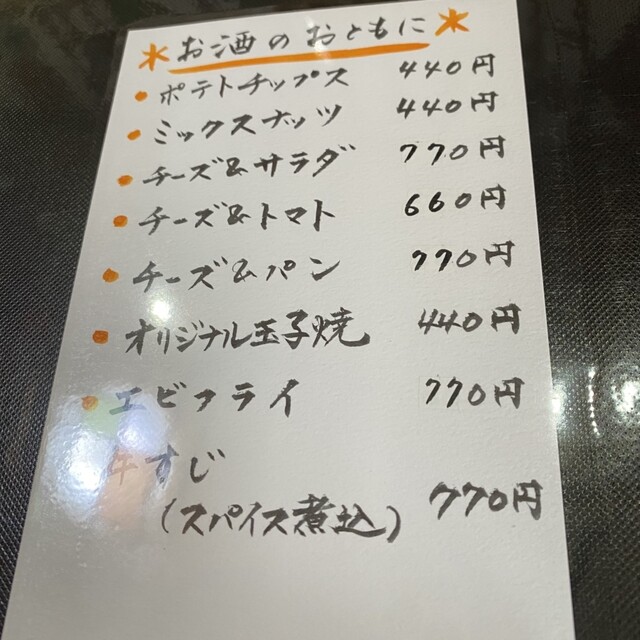 お酒のおともに
ポテトチップス 440円
ミックスナッツ 440円
チーズ&サラダ 770円
チーズ&トマト 660円
チーズ&パン 770円
オリジナル玉子焼 440円
エビフライ 770円
牛すじ
(スパイス煮込) 770円